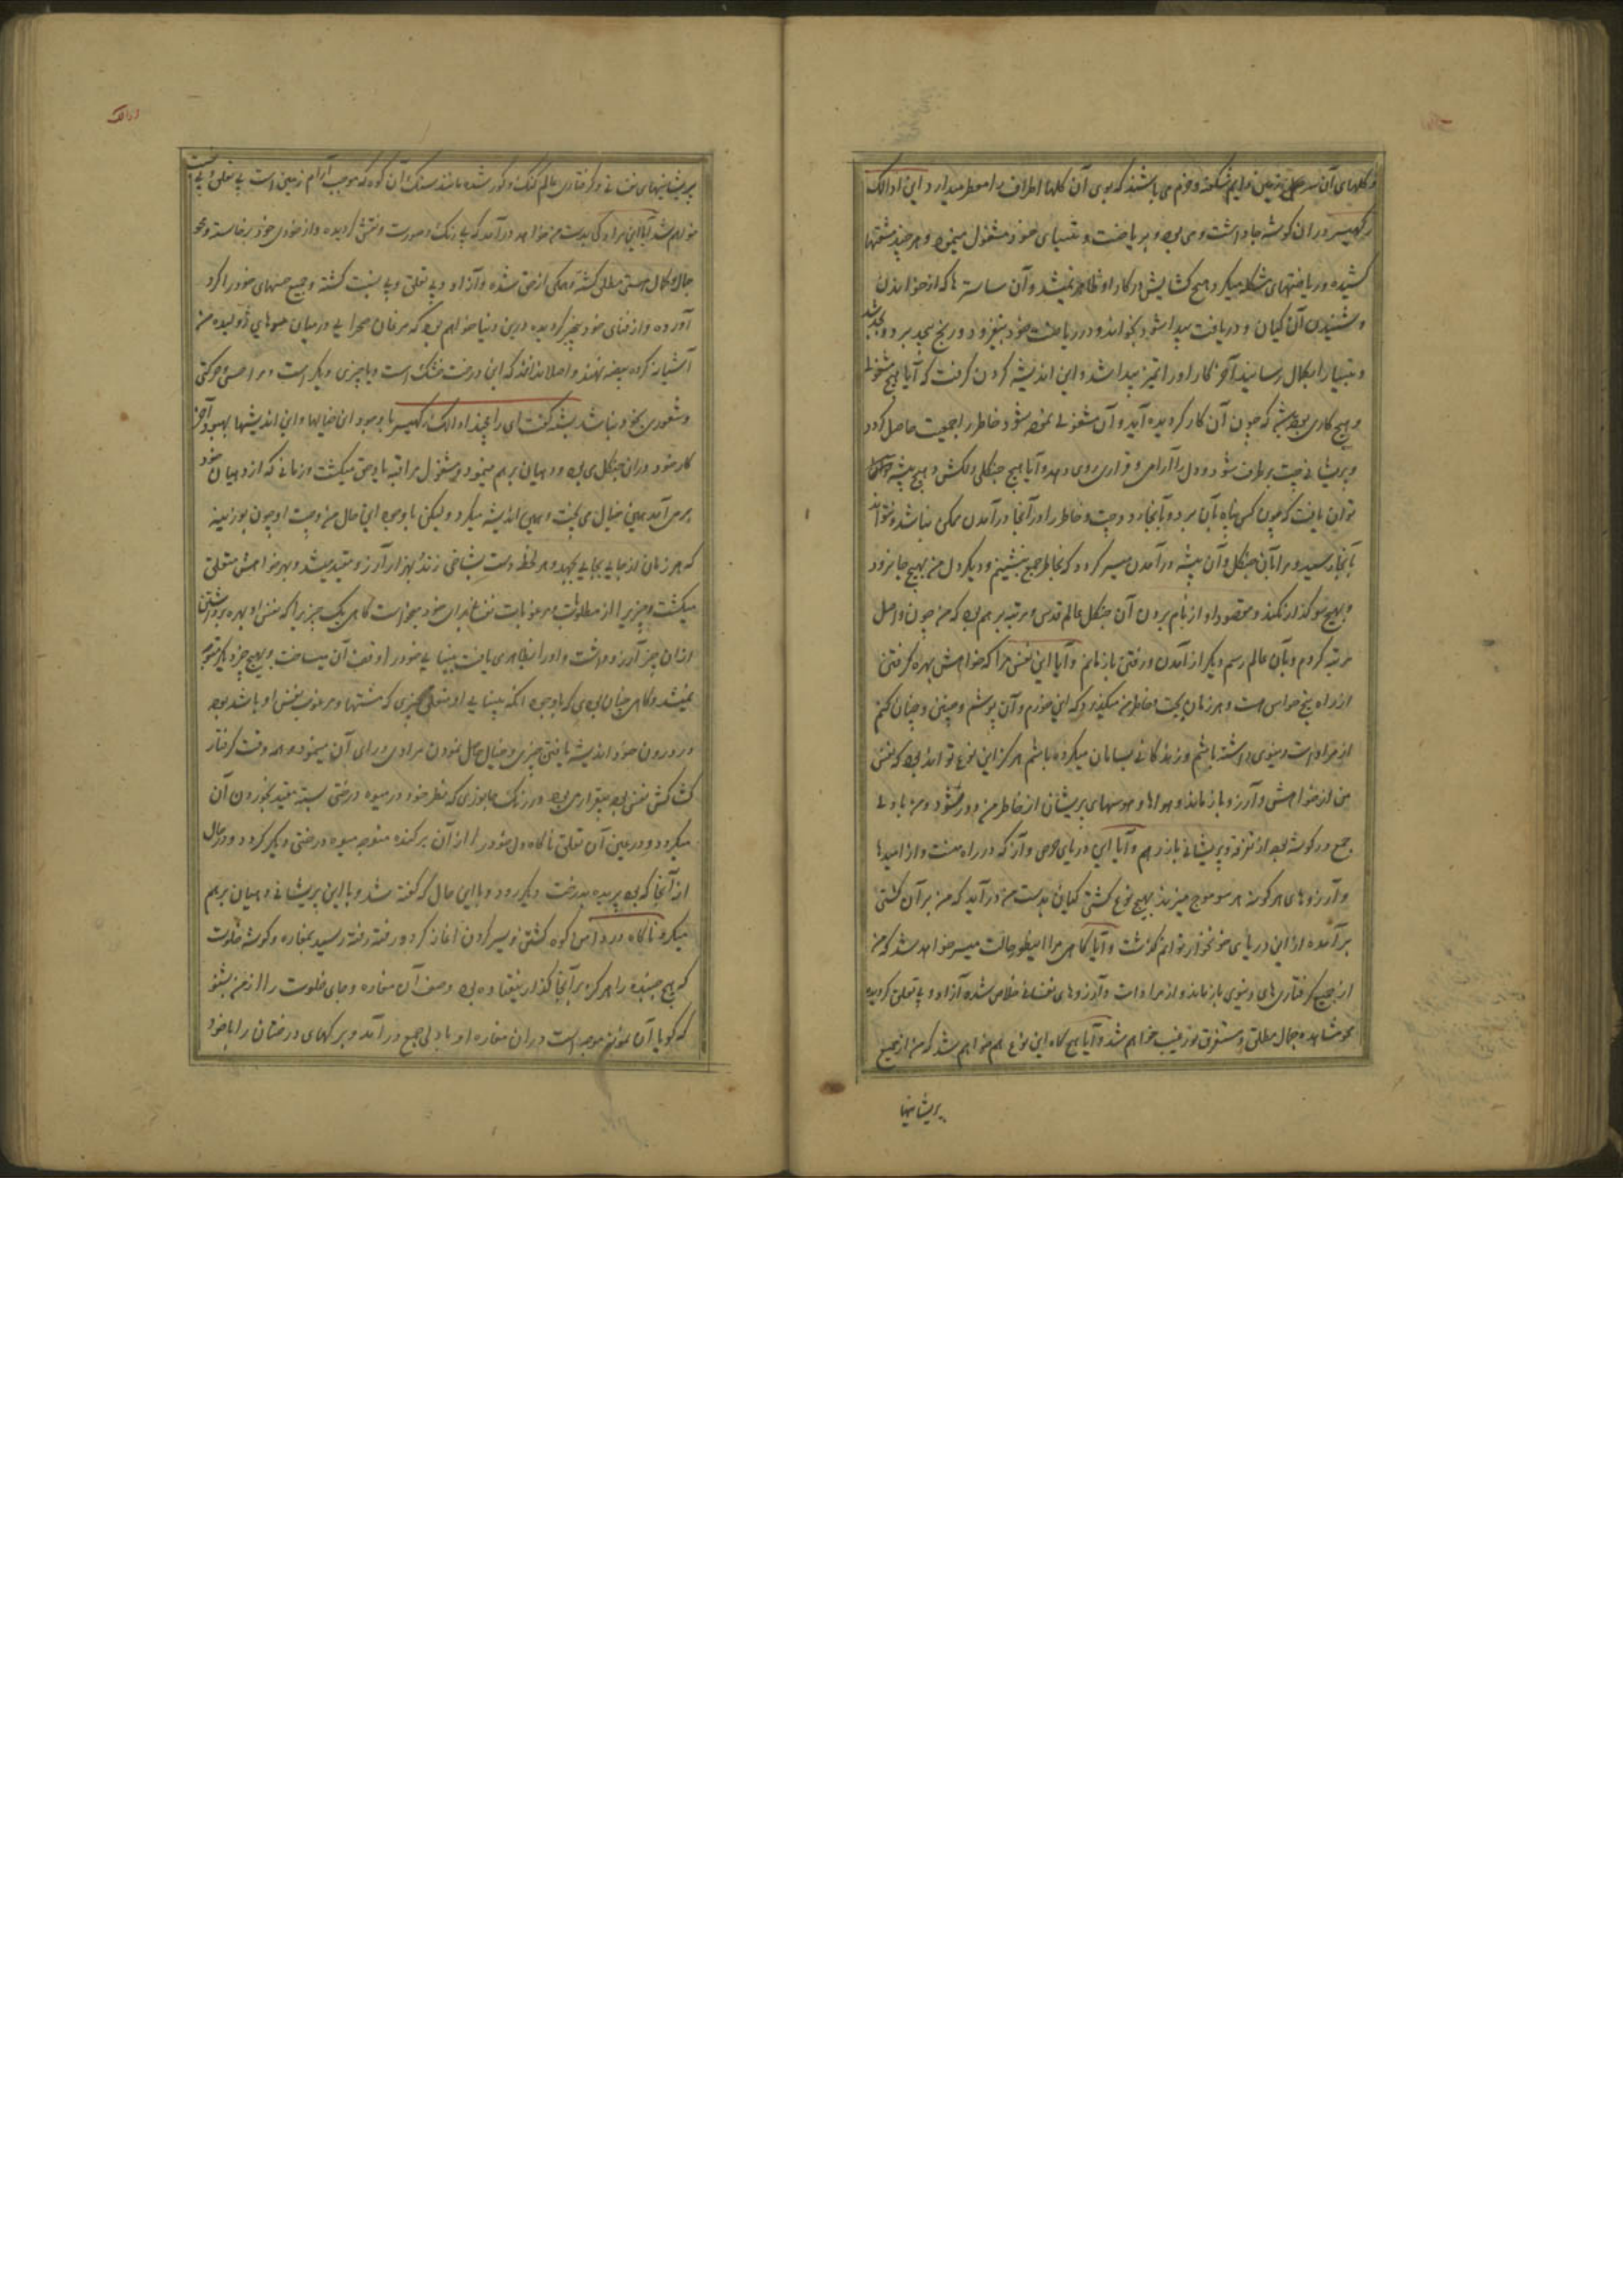 و گلهای آن سر زمین دایم شکفته و خرم می باشند که بوی آن گلها اطراف را معطر میدارد این اودالک
رکهیسر در ان گوشه جا داشت و می بود و بریاضت و تپسیای خود مشغول میبود و هر چند مشقتها
کشیده و ریاضتهای مشکل میکرد هیچ کشایش در کار او ظاهر نمیشد و آن ساستر ها که از خواندن
و شنیدن آن گیان و دریافت پیدا شود بخواند و در ریاضت خود بیفزود و رنج بیحد برد و
و تپسیا را بکمال رسانید آخر کار او را تمیز پیدا شد و این اندیشه کردن گرفت که آیا هیچ شغولی
و هیچ کاری بوده باشد که چون آن کار کرده آید و آن مشغولی نموده شود خاطر را جمعیت حاصل گردد
و پریشانی چت برطرف شود و دل را آرامی و قراری روی دهد و آیا هیچ جنگلی دلکش و هیچ بیشه
توان یافت که چون کس پناه بآن برد و بآنجا رود چت و خاطر را در آنجا در آمدن ممکن نباشد و نتواند
بآنجا رسید و مرا بآن جنگل و آن بیشه در آمدن میسر گردد که بخاطر جمع بنشینم و دیگر دل من بهیچ جا نرود
و بهیچ سو گذار نکند و مقصود او از نام بردن آن جنگل عالم قدس و مرتبه برهم بود که من چون واصل
مرتبه گردم و بآن عالم رسم دیگر از آمدن و رفتن باز مانم و آیا این نفس مرا که خواهش بهره گرفتن
از راه پنج حواس است و هر زمان بچت و خاطر من میگذرد که این خورم و آن پوشم و چنین و چنان کنم
از مرادات دنیوی داشته باشم و زندگانی بسامان میکرده باشم هرگز این نوع تواند بود که نفس
من از خواهش و آرزو باز ماند و هواها و هوسهای پریشان از خاطر من دور شود و من با دلی
جمع در گوشه بوده از تفرقه و پریشانی باز رهم و آیا این دریای حرص و آز که در راه منست و از امیدها
و آرزوهای هر گونه هر سو موج میزند بهیچ نوع کشتی گیان بدست من در آید که من بر آن کشتی
بر آمده از این دریای خونخوار توانم گذشت و آیا گاهی مرا اینطور حالت میسر خواهد شد که من
از جمیع گرفتاری های دنیوی باز ماند و از مرادات و آرزوهای نفسانی خلاص شده آزاد و بی تعلق گردیده
محو مشاهده جمال مطلق و مستغرق نور غیب خواهم شد و آیا هیچ گاه این نوع هم خواهم شد که من از جمیع
پریشانیها
پریشانیهای نفسانی و گرفتاری عالم گنگ و کور شده مانند سنگ آن کوه که موجب آرام زمین است بی تعلق و بی
خواهم شد آیا این مراد کی بدست من خواهد در آمد که بی رنگ و صورت و نقش گردیده و از خودی خود برخاسته و محو
جمال و کمال هستی مطلق گشته و همگی از حق شده و آزاد و بی تعلق و بی نسبت گشته و جمیع حسهای خود را گرد
آورده و از فنای خود بیخبر گردیده درین دنیا خواهم بود که مرغان صحرایی در میان موهای ژولیده من
آشیانه کرده بیضه نهند و اصلا ندانند که این درخت خشک است و یا چیزی دیگر است و مرا حسی و حرکتی
و شعوری بخود نباشد بشست گفت ای رامچند اودالک رکهیسر با وجود این خیالها و این اندیشها بهبود آخر
کار خود در ان جنگل می بود و دهیان برهم مینمود و مشغول مراقبه یاد حق میگشت و زمانی که از دهیان خود
برمی آمد همین خیال می پخت و همین اندیشه میکرد و لیکن با وجود این حال من و چت او چون بوزینه
که هر زمان از جایی بجایی بجهد و هر لحظه دست بشاخی زند بهزار آرزو مقید میشد و بهر خواهش متعلق
میگشت و چیزی را از مطلوبات و مرغوبات نفسانی برای خود میخواست گاهی یک چیز را که نفس او بهره برداشتن
ازان چیز آرزو داشت و او را نظاهر می یافت بینایی خود را وقف آن میساخت و بهیچ چیز دیگر متوجه
نمیشد و گاهی چنان بودی که باوجود آنکه بینایی او متعلق چیزی که مشتها و مرغوب نفس او باشد بود
در درون خود اندیشه یافتن چیزی و خیال حاصل نمودن مرادی ورای آن مینمود و همه وقت گرفتار
کشاکش نفس بود و بیقرار می بود در رنگ جانوری که نظر خود در میوه درختی بسته مقید بخوردن آن
میگردد و در عین آن تعلق ناگاه دل خود را از آن برکنده متوجه میوه درختی دیگر گردد و در حال
از آنجا که بود پریده بدرخت دیگر رود و با این حال که گفته شد و با این پریشانی دهیان برهم
میکرد ناگاه در دامن کوه گشتن و سیر کردن آغاز کرد و رفته رفته رسید بمغاره و گوشه خلوت
که هیچ جنبنده را هرگز بر آنجا گذار نیفتاده بود وصف آن مغاره و جای خلوت را از من بشنو
که گویا آن نمونه موجد است در ان مغاره او با دلی جمع در آمد و برگهای درختان را با خود